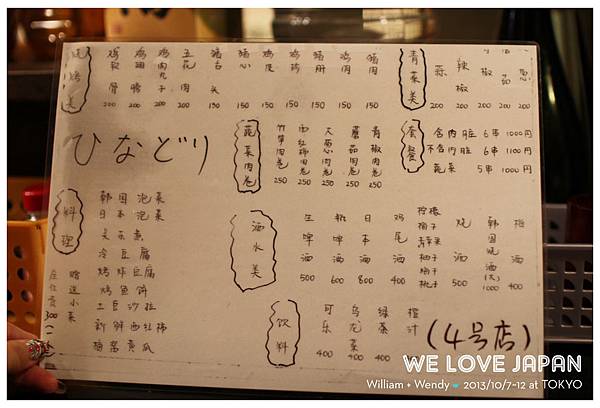 烧烤美
鸡软骨 200
鸡翅膀 200
鸡肉丸子 200
五花肉 200
猪舌头 150
猪心 150
鸡皮 150
鸡胗 150
猪肝 150
鸡肉 150
猪肉 150
青菜美
蒜 200
辣椒 200
200
200
200
ひなどり
蔬菜肉卷
竹笋肉卷 250
西红柿肉卷 250
大葱心肉卷 250
蘑菇肉卷 250
青椒肉卷 250
套餐
含内脏 6串 1000円
不含内脏 6串 1100円
蔬菜 5串 1000円
料理
韩国泡菜
日本泡菜
关东煮
冷豆腐
烤炸豆腐
烤鱼饼
土豆沙拉
新鲜西红柿
梅酱黄瓜
赠送小菜
座位费300
酒水美
生啤酒 500
瓶啤酒 600
日本酒 800
鸡尾酒 400
柠檬
梅子
青苹果
柚子
桃子
烧酒 500
韩国烧酒(大) 1000
梅酒 400
饮料
可乐 400
乌龙茶 400
绿茶 400
橙汁 400
(4号店)
WE LOVE JAPAN
William + Wendy 2013/10/7-12 at TOKYO